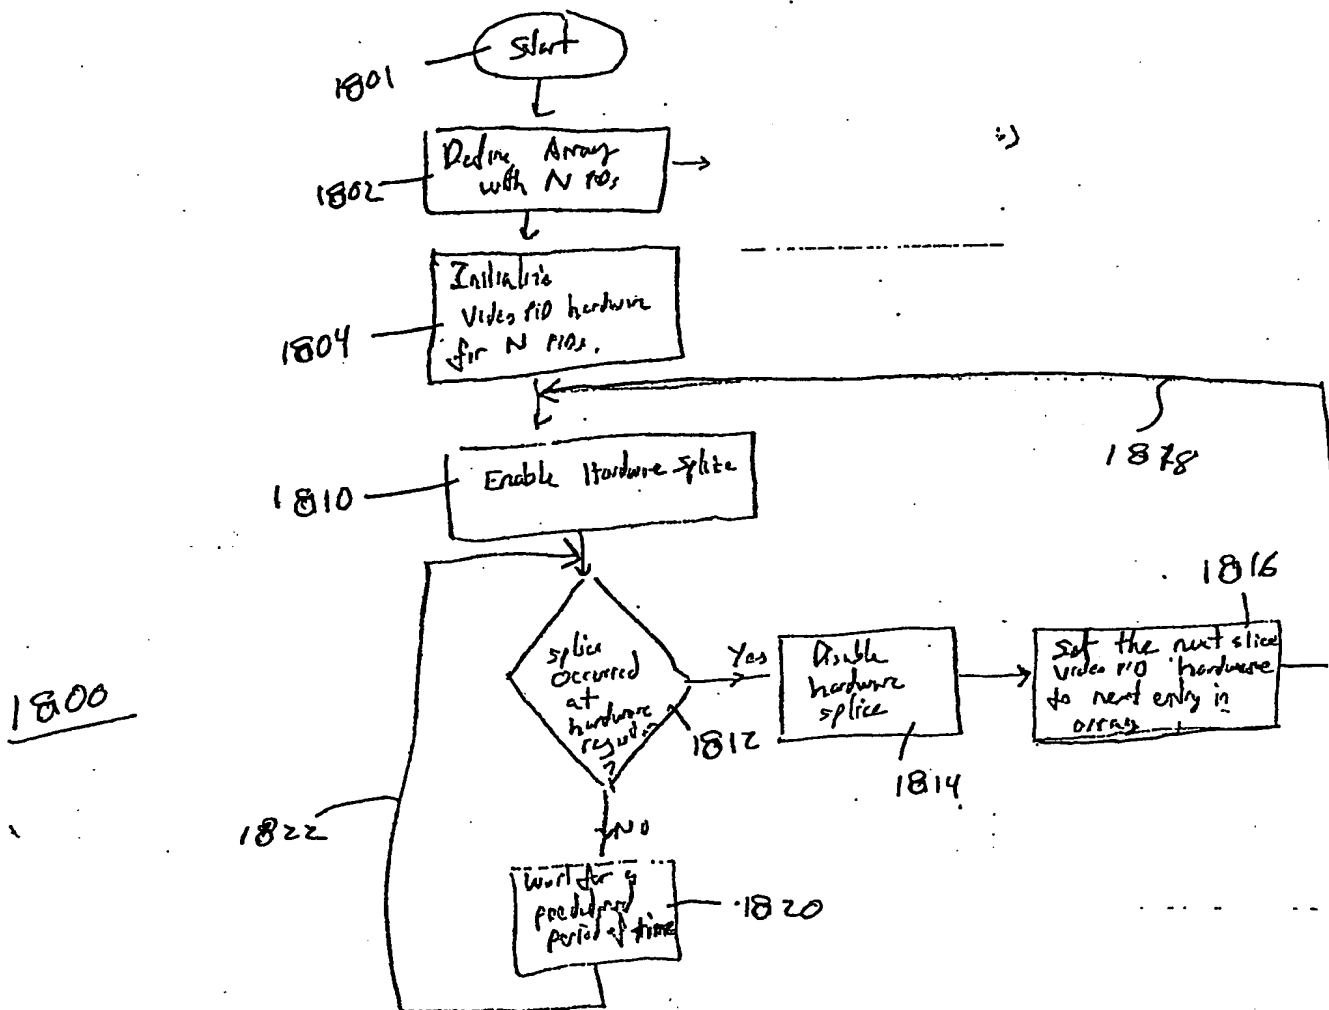 Start
1801
Define Array
with N PIDs
1802
Initialize
Video PID hardware
for N PIDs.
1804
1878
Enable Hardware Splice
1810
1816
splice
occurred
at
hardware
?
Yes
1812
Disable
hardware
splice
1814
Set the next slice
video PID hardware
to next entry in
array
1800
1822
NO
wait for a
period of time
1820